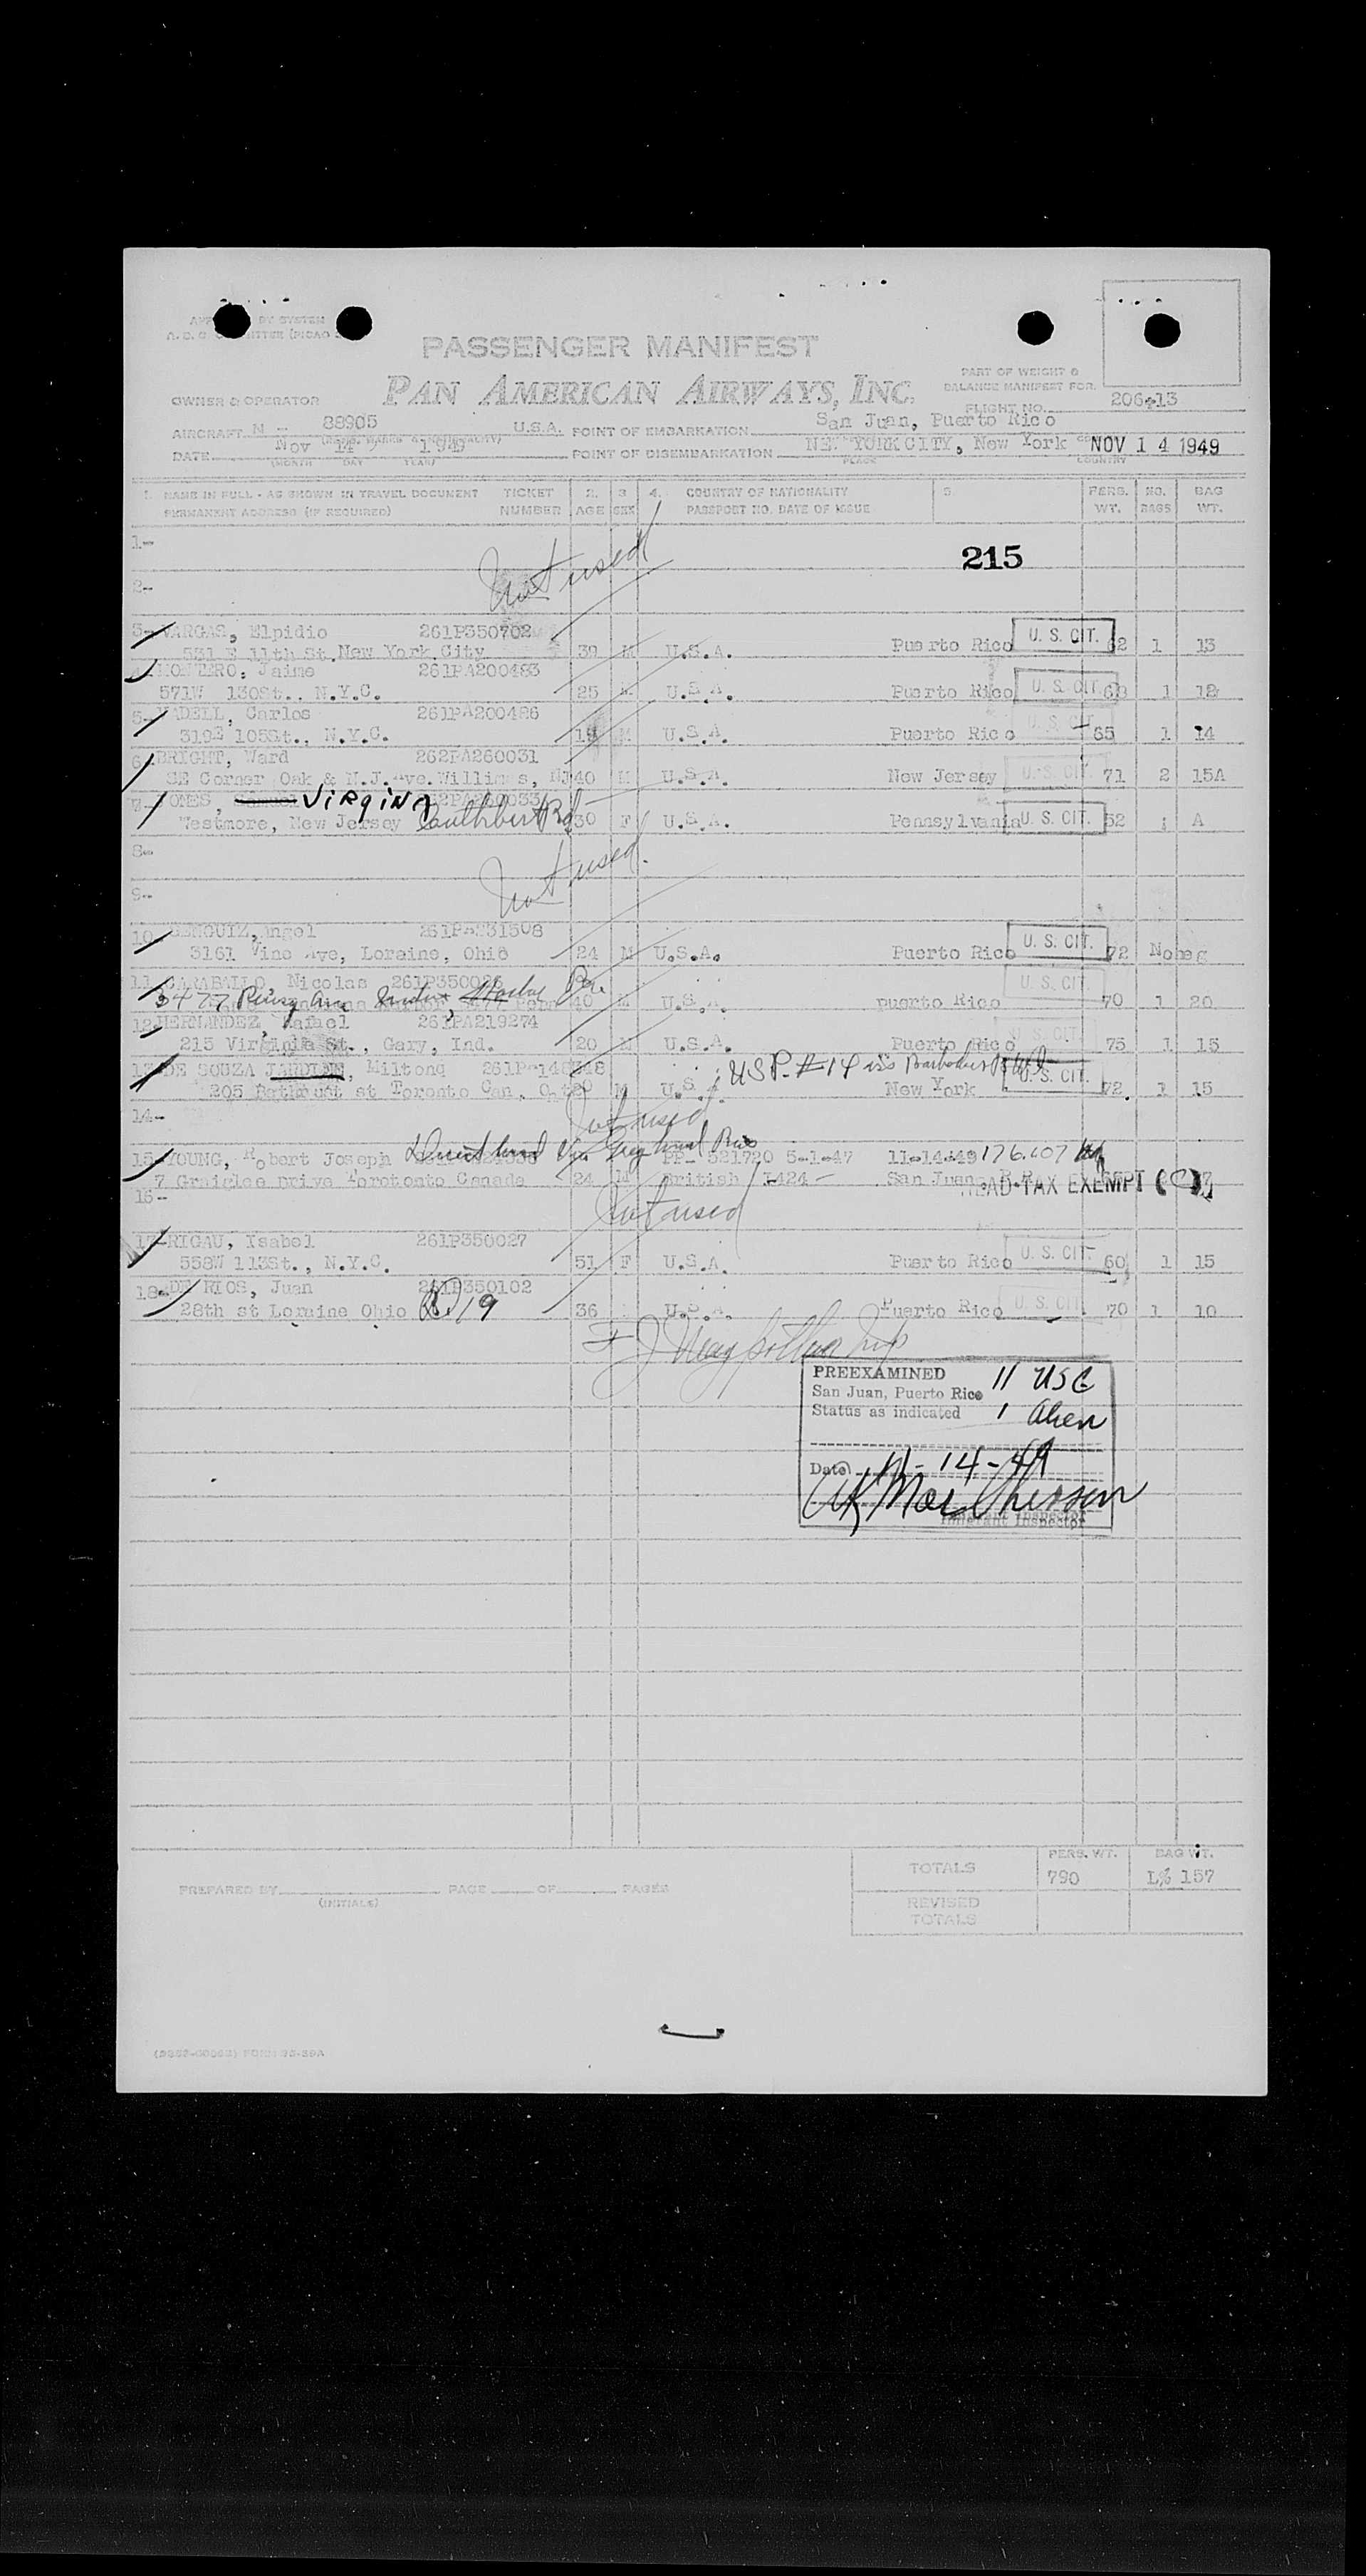 PASSENGER MANIFEST
PAN AMERICAN AIRWAYS, INC.
PART OF WEIGHT &
BALANCE MANIFEST FOR
OWNER & OPERATOR
FLIGHT NO. 206-13
AIRCRAFT N - 88905 U.S.A. POINT OF EMBARKATION San Juan, Puerto Rico
DATE Nov 14 1949 POINT OF DISEMBARKATION NEW YORK CITY, New York NOV 14 1949
(MONTH DAY YEAR) PLACE COUNTRY
1. NAME IN FULL - AS SHOWN IN TRAVEL DOCUMENT TICKET 2. 3 4. COUNTRY OF NATIONALITY 5 PERS. NO. BAG
PERMANENT ADDRESS (IF REQUIRED) NUMBER AGE SEX PASSPORT NO. DATE OF ISSUE WT. BAGS WT.
1-
Not used 215
2-
3- VARGAS, Elpidio 261P350702
531 E 11th St. New York City 39 M U.S.A. Puerto Rico U. S. CIT. 62 1 13
4- MONTERO, Jaime 261PA200483
571W 130St., N.Y.C. 25 M U.S.A. Puerto Rico U. S. CIT. 68 1 12
5- VADELL, Carlos 261PA200486
319E 105St., N.Y.C. M U.S.A. Puerto Rico U. S. CIT. 65 1 14
6- BRIGHT, Ward 262PA260031
SE Corner Oak & N.J. Ave. NJ 40 M U.S.A. New Jersey U. S. CIT. 71 2 15A
7- JONES, VIRGINA
Westmore, New Jersey Cuthbert Rd 30 F U.S.A. Pennsylvania U. S. CIT. 52 1 A
8-
Not used.
9-
10 Angel
3161 Vine Ave, Loraine, Ohio 24 M U.S.A. Puerto Rico U. S. CIT. 72 No bag
11 CARABALLO, Nicolas 261P350026
3477 40 M U.S.A. Puerto Rico U. S. CIT. 70 1 20
12 HERNANDEZ, Rafael 261PA219274
215 Virginia St., Gary, Ind. 20 M U.S.A. Puerto Rico U. S. CIT. 75 1 15
13 DE SOUZA JARDINE, USP-#14 iss Barbados
205 st Toronto Can, M New York U. S. CIT. 72. 1 15
14-
Not used
15- YOUNG, Robert Joseph PP- 521720 5-1-47 11-14-49
7 Drive Torotonto Canada 24 M British San Juan, P.R. HEAD-TAX EXEMPT
16-
Not used
17- RIGAU, Isabel 261P350027
558W 113St., N.Y.C. 51 F U.S.A. Puerto Rico U. S. CIT 60 1 15
18- DE RIOS, Juan 261P350102
28th st Loraine Ohio 36 U.S.A. Puerto Rico U. S. CIT. 70 1 10
PREEXAMINED 11 USC
San Juan, Puerto Rico
Status as indicated 1 Alien
Date 11-14-49
Immigrant Inspector
TOTALS PERS. WT. BAG WT.
790 157
PREPARED BY PAGE OF PAGES
(INITIALS)
REVISED
TOTALS